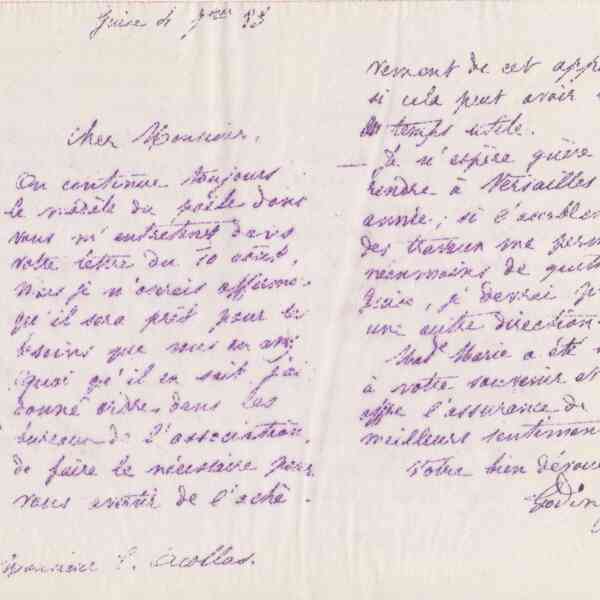 Guise 4 7bre 83
Cher Monsieur,
On continue toujours
le modèle du poêle dont
vous m'entretenez dans
votre lettre du 10 août,
mais je n'oserais affirmer
qu'il sera prêt pour les
besoins que vous en avez
quoi qu'il en soit j'ai
donné ordre dans les
bureaux de l'association,
de faire le nécessaire pour
vous avertir de l'achè-
Monsieur E. Acollas.
vement de cet app
si cela peut avoir
en temps utile.
— Je n'espère guère
rendre à Versailles
année; si l'assemblée
des travaux me perm
néanmoins de quitt
Guise, je devrai
une autre direction.
Mad. Marie a été
à votre souvenir et
offre l'assurance de
meilleurs sentiments
Votre bien dévoué
Godin